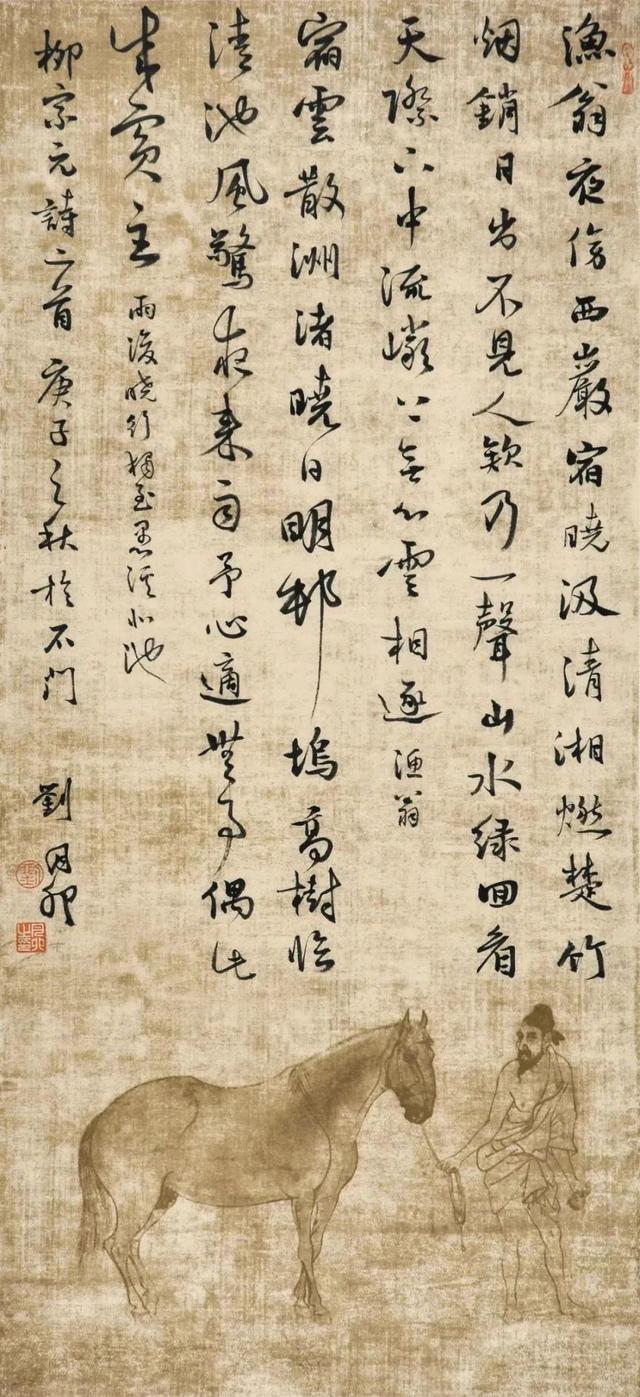 漁翁夜傍西巖宿曉汲清湘燃楚竹
烟銷日出不見人欸乃一聲山水緑回看
天際下中流巖上無心雲相逐 漁翁
宿雲散洲渚曉日明邨塢高樹臨
清池風驚夜來雨予心適無事偶此
成賓主 雨後曉行獨至愚溪北池
柳宗元詩二首 庚子之秋於石門 劉月卯